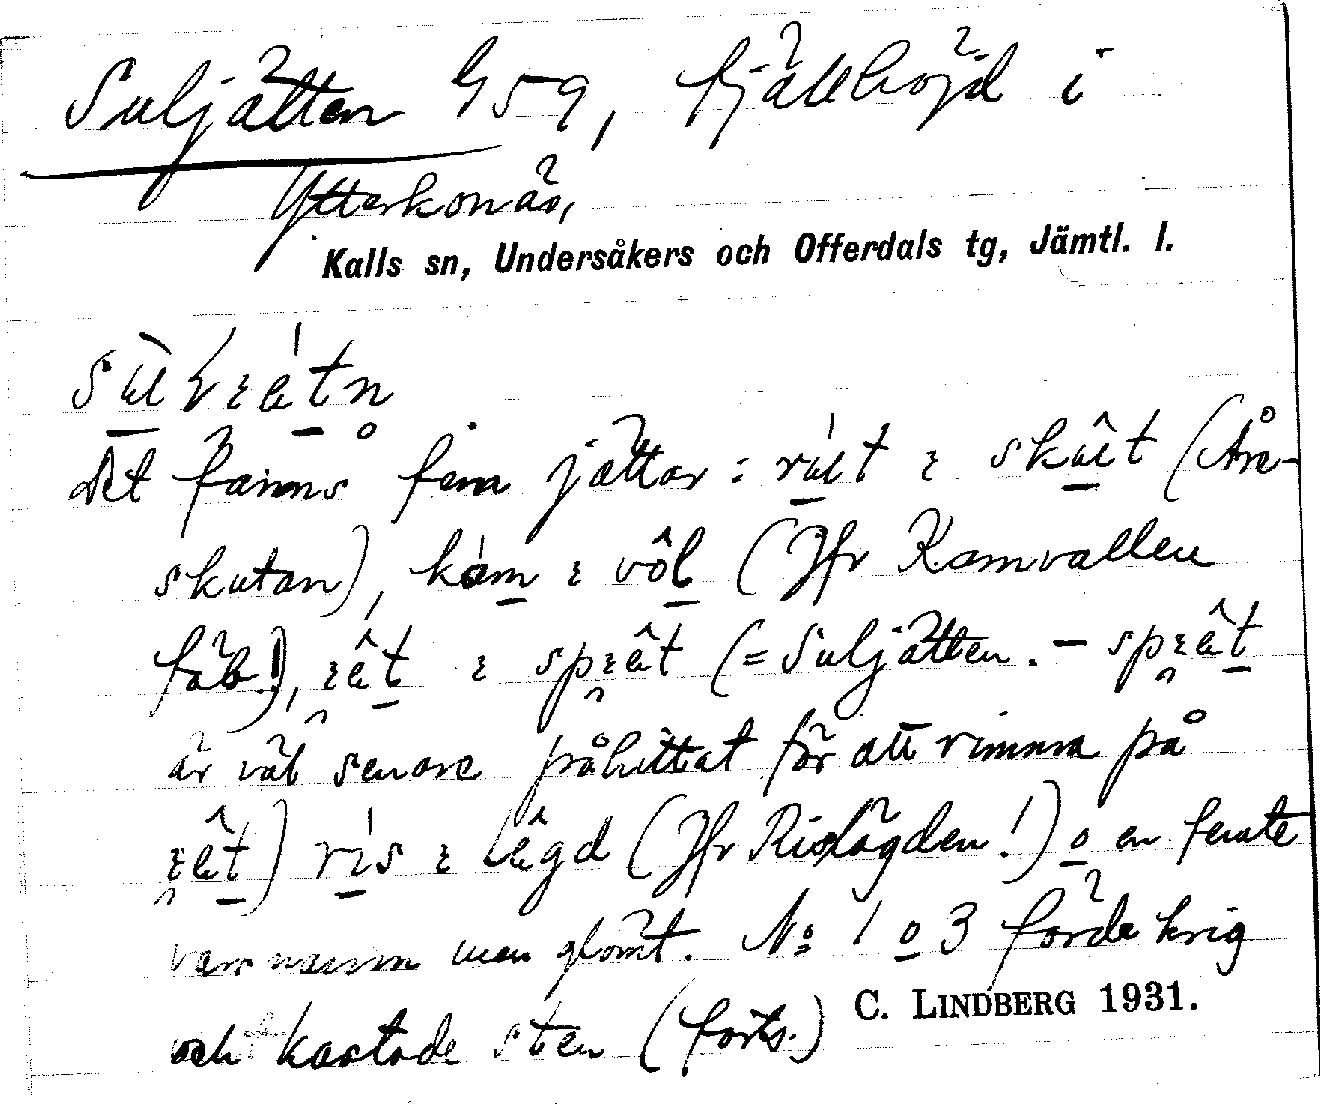 Suljätten 459, fjällhöjd i
Ytterkonäs,
Kalls sn, Undersåkers och Offerdals tg, Jämtl. l.
Det fanns fem jättar: rút i skût (Åre-
skutan), kám i vôl (Jfr Kamvallen
fäb!), i (= Suljätten. –
är väl senare påhittat för att rimma på
) rís i lêgd (Jfr Rislägden!) o en femte
vars namn man glömt. No 1 o 3 förde krig
och kastade sten (forts.)
C. LINDBERG 1931.